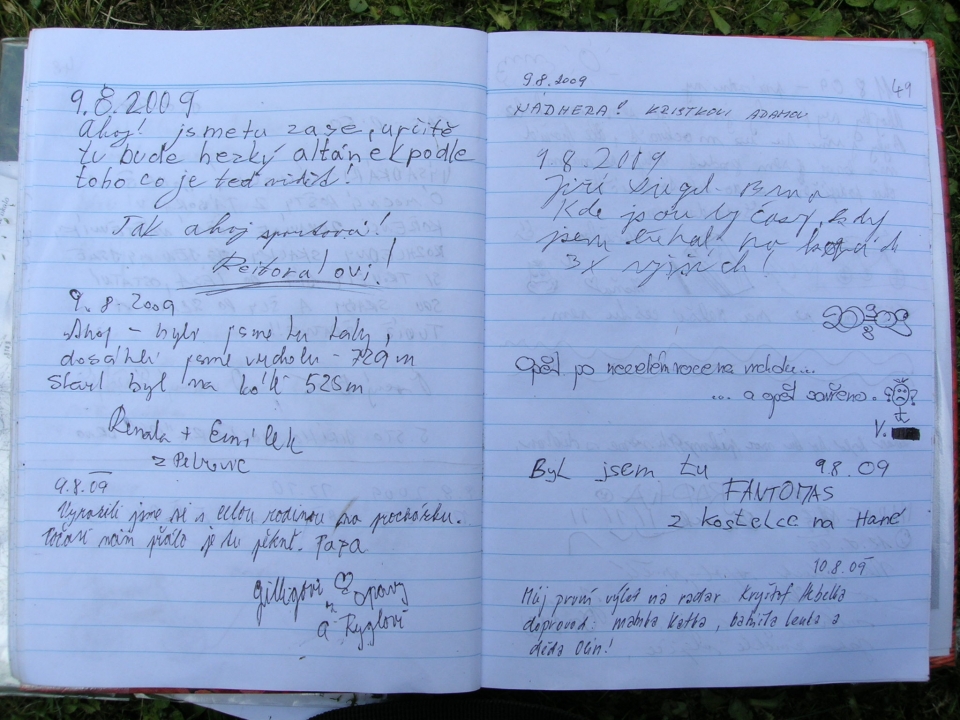 9.8.2009
Ahoj! jsme tu zase, určitě
tu bude hezký altánek podle
toho co je teď vidět!
Tak ahoj sportovci!
9.8.2009
Ahoj – byli jsme tu taky,
dosáhli jsme vrcholu – 729 m
Start byl na kótě 525m
Renata + Emílek
z Petrovic
9.8.09
Vyrazili jsme si s celou rodinou na procházku.
Počasí nám přálo je tu pěkně. Papa
z Opavy
a Ryglovi
9.8.2009
49
NÁDHERA! KRISTKOVI ADAMOV
9.8.2009
Jiří Siegel - Brno
Kde jsou ty časy, kdy
jsem běhal na horách
3x vyšších!
2009
9
8
Opět po necelém roce na vrcholu...
... a opět zavřeno.
V.
Byl jsem tu 9.8.09
FANTOMAS
z Kostelce na Hané
10.8.09
Můj první výlet na radar Kryštof
doprovod: mamka Katka, babička Lenka a
děda Olin!